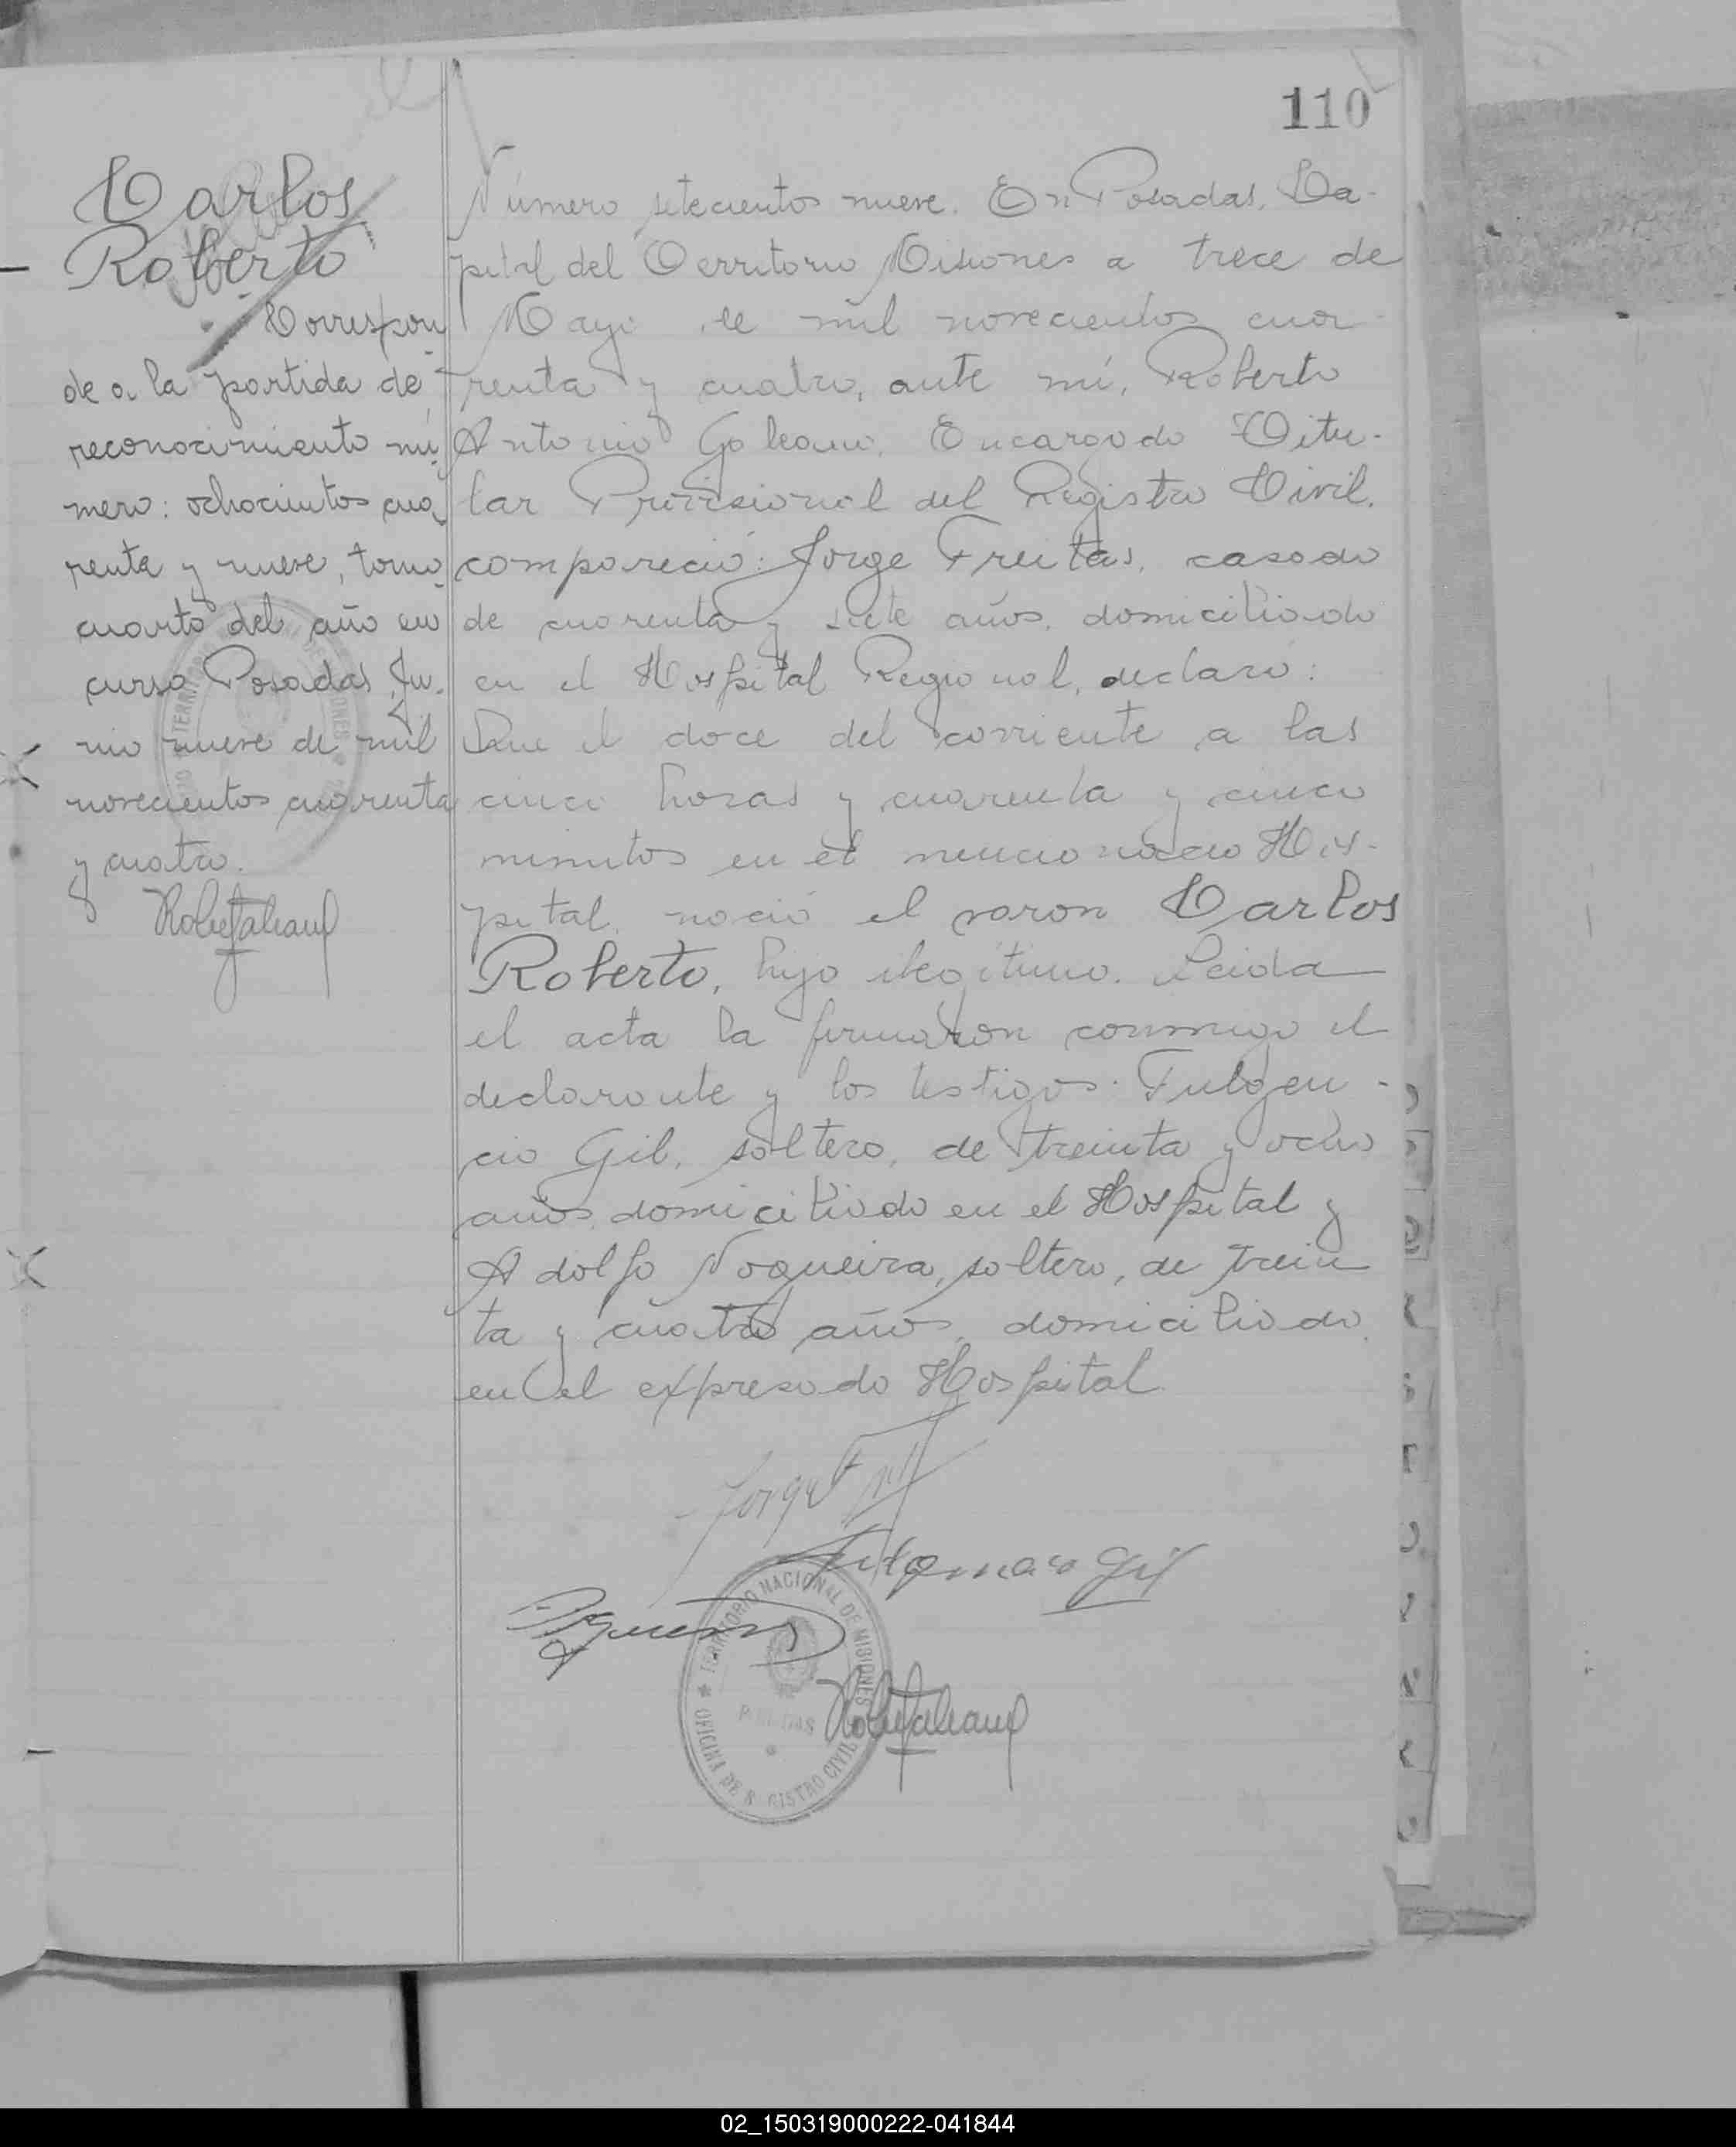 110
Carlos
Roberto
Correspon
de a la partida de
reconocimiento nú
mero: ochocientos cua
renta y nueve, tomo
cuarto del año en
curso Posadas, Ju-
nio nueve de mil
novecientos cuarenta
y cuatro.
Número setecientos nueve. En Posadas, Ca-
pital del Territorio Misiones a trece de
Mayo de mil novecientos cua-
renta y cuatro, ante mí, Roberto
Antonio Galeano, Encargado Titu-
lar Provisional del Registro Civil,
compareció: Jorge Freitas, casado
de cuarenta y siete años, domiciliado
en el Hospital Regional, declaró:
Que el doce del corriente a las
cinco horas y cuarenta y cinco
minutos en el mencionado Hos-
pital, nació el varon Carlos
Roberto, hijo ilegítimo. Leida
el acta la firmaron conmigo el
declarante y los testigos: Fulgen-
cio Gil, soltero, de treinta y ocho
años, domiciliado en el Hospital y
Adolfo Nogueira, soltero, de trein
ta y cuatro años, domiciliado
en el expresado Hospital.
Jorge
Gil
TERRITORIO NACIONAL DE MISIONES
OFICINA DE REGISTRO CIVIL
POSADAS
02_150319000222-041844